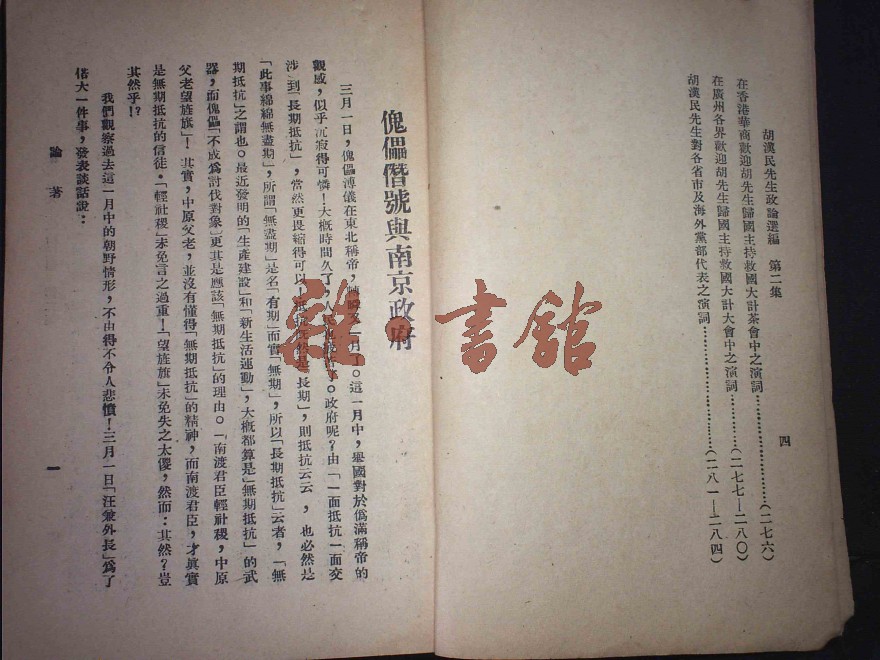 胡漢民先生政論選編　第二集
四
在香港華商歡迎胡先生歸國主持救國大計茶會中之演詞………………(二七六)
在廣州各界歡迎胡先生歸國主持救國大計大會中之演詞………(二七七—二八〇)
胡漢民先生對各省市及海外黨部代表之演詞………………………(二八一—二八四)
傀儡僭號與南京政府
三月一日，傀儡溥儀在東北稱帝，轉瞬又一月了。這一月中，舉國對於僞滿稱帝的
觀感，似乎沉寂得可憐！大槪時間久了，人民也。政府呢？由「一面抵抗一面交
涉」到「長期抵抗」，當然更畏縮得可以！抵抗既然是「長期」，則抵抗云云，也必然是
「此事綿綿無盡期」，所謂「無盡期」是名「有期」而實「無期」，所以「長期抵抗」云者，「無
期抵抗」之謂也。最近發明的「生產建設」和「新生活運動」，大槪都算是「無期抵抗」的武
器，而傀儡「不成爲討伐對象」更其是應該「無期抵抗」的理由。「南渡君臣輕社稷，中原
父老望旌旗」！其實，中原父老，並沒有懂得「無期抵抗」的精神，而南渡君臣，才眞實
是無期抵抗的信徒。「輕社稷」未免言之過重！「望旌旗」未免失之太儍，然而：其然？豈
其然乎！？
我們觀察過去這一月中的朝野情形，不由得不令人悲憤！三月一日「汪兼外長」爲了
偌大一件事，發表談話說：
論著
一
雜·書館